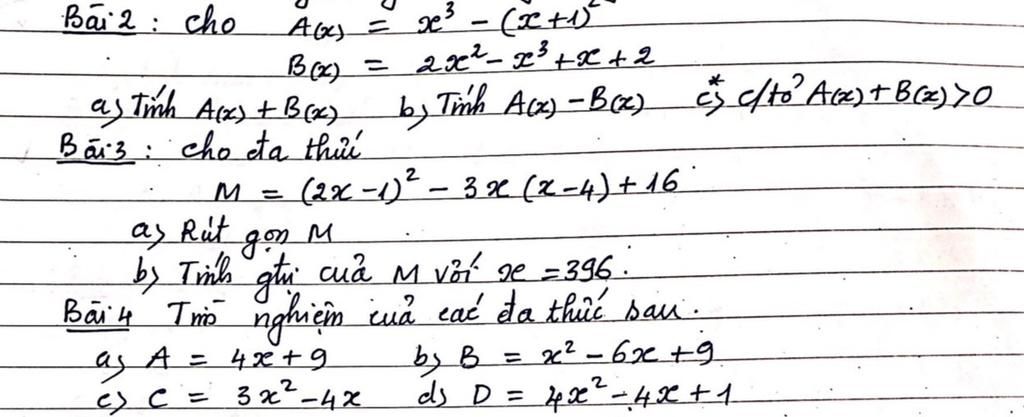 Bài 2 : cho A(x) = x³ - (x+1)²
B(x) = 2x² - x³ + x + 2
a) Tính A(x) + B(x) b) Tính A(x) - B(x) c)* c/tỏ A(x) + B(x) > 0
Bài 3 : cho đa thức
M = (2x - 1)² - 3x (x - 4) + 16
a) Rút gọn M
b) Tính gtrị cuả M với x = 396.
Bài 4 Tìm nghiệm cuả các đa thức sau.
a) A = 4x + 9 b) B = x² - 6x + 9
c) C = 3x² - 4x d) D = 4x² - 4x + 1